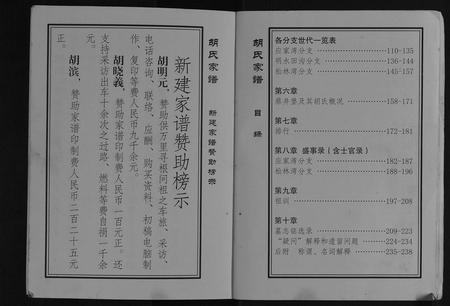 胡氏家谱
新建家谱赞助榜示
新建家谱赞助榜示
胡明元，赞助供万里寻根问祖之车旅、采访、
电话咨询、联络、应酬、购买资料、初稿电脑制
作、复印等费人民币九千余元。
胡晓義，赞助家谱印制费人民币一百元正。还
支持采访出车十余次之过路、燃料等费自损一千余
元。
胡滨，赞助家谱印制费人民币二百二十五元
正。
胡氏家谱
目录
各分支世代一览表
应家湾分支——110-135
明水田沟分支——136-144
柏林湾分支——145-157
第六章
雁井垫及其胡氏概况——158-171
第七章
排行——172-181
第八章 盛事录（含士官录）
应家湾分支——182-187
柏林湾分支——188-196
第九章
祖训——197-208
第十章
墓志铭选录——209-223
“疑问”解释和遗留问题——224-234
后附 称谓、名词解释——235-238